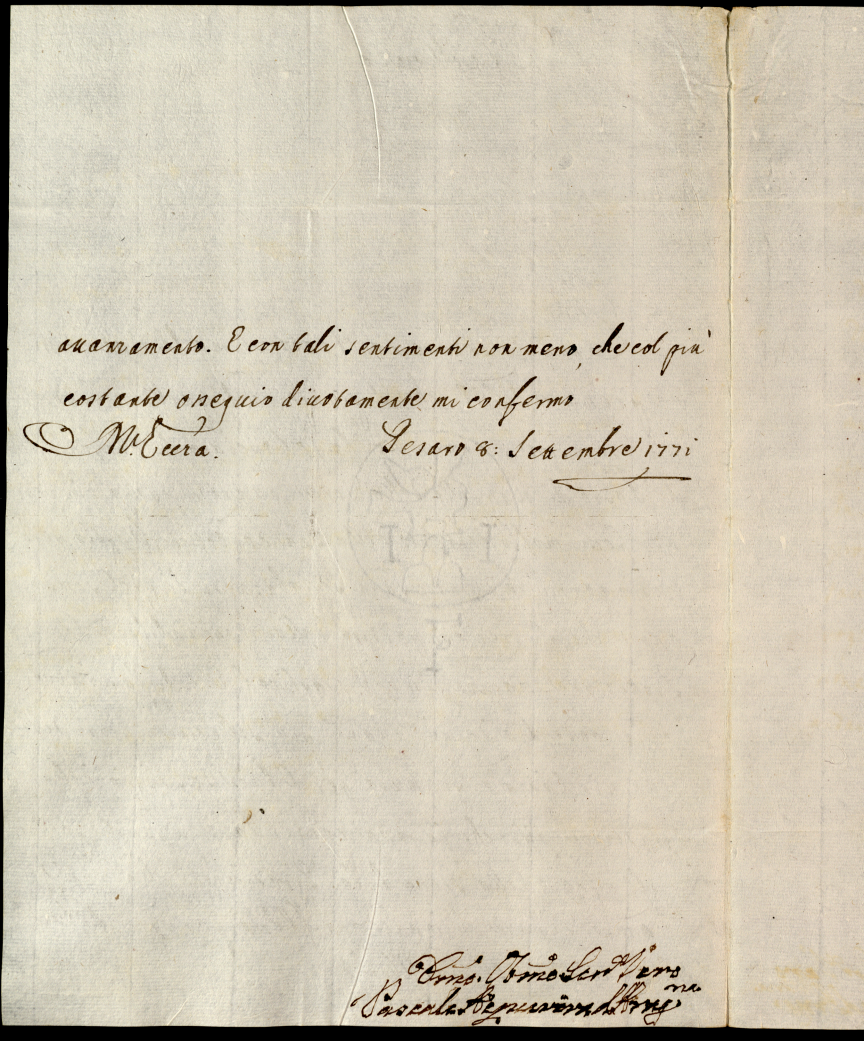 auanzamento. E con tali sentimenti non meno, che col più
costante ossequio diuotamente mi confermo
Pesaro 8: Settembre 1771
Dmo. Obmo Seru
Pascale